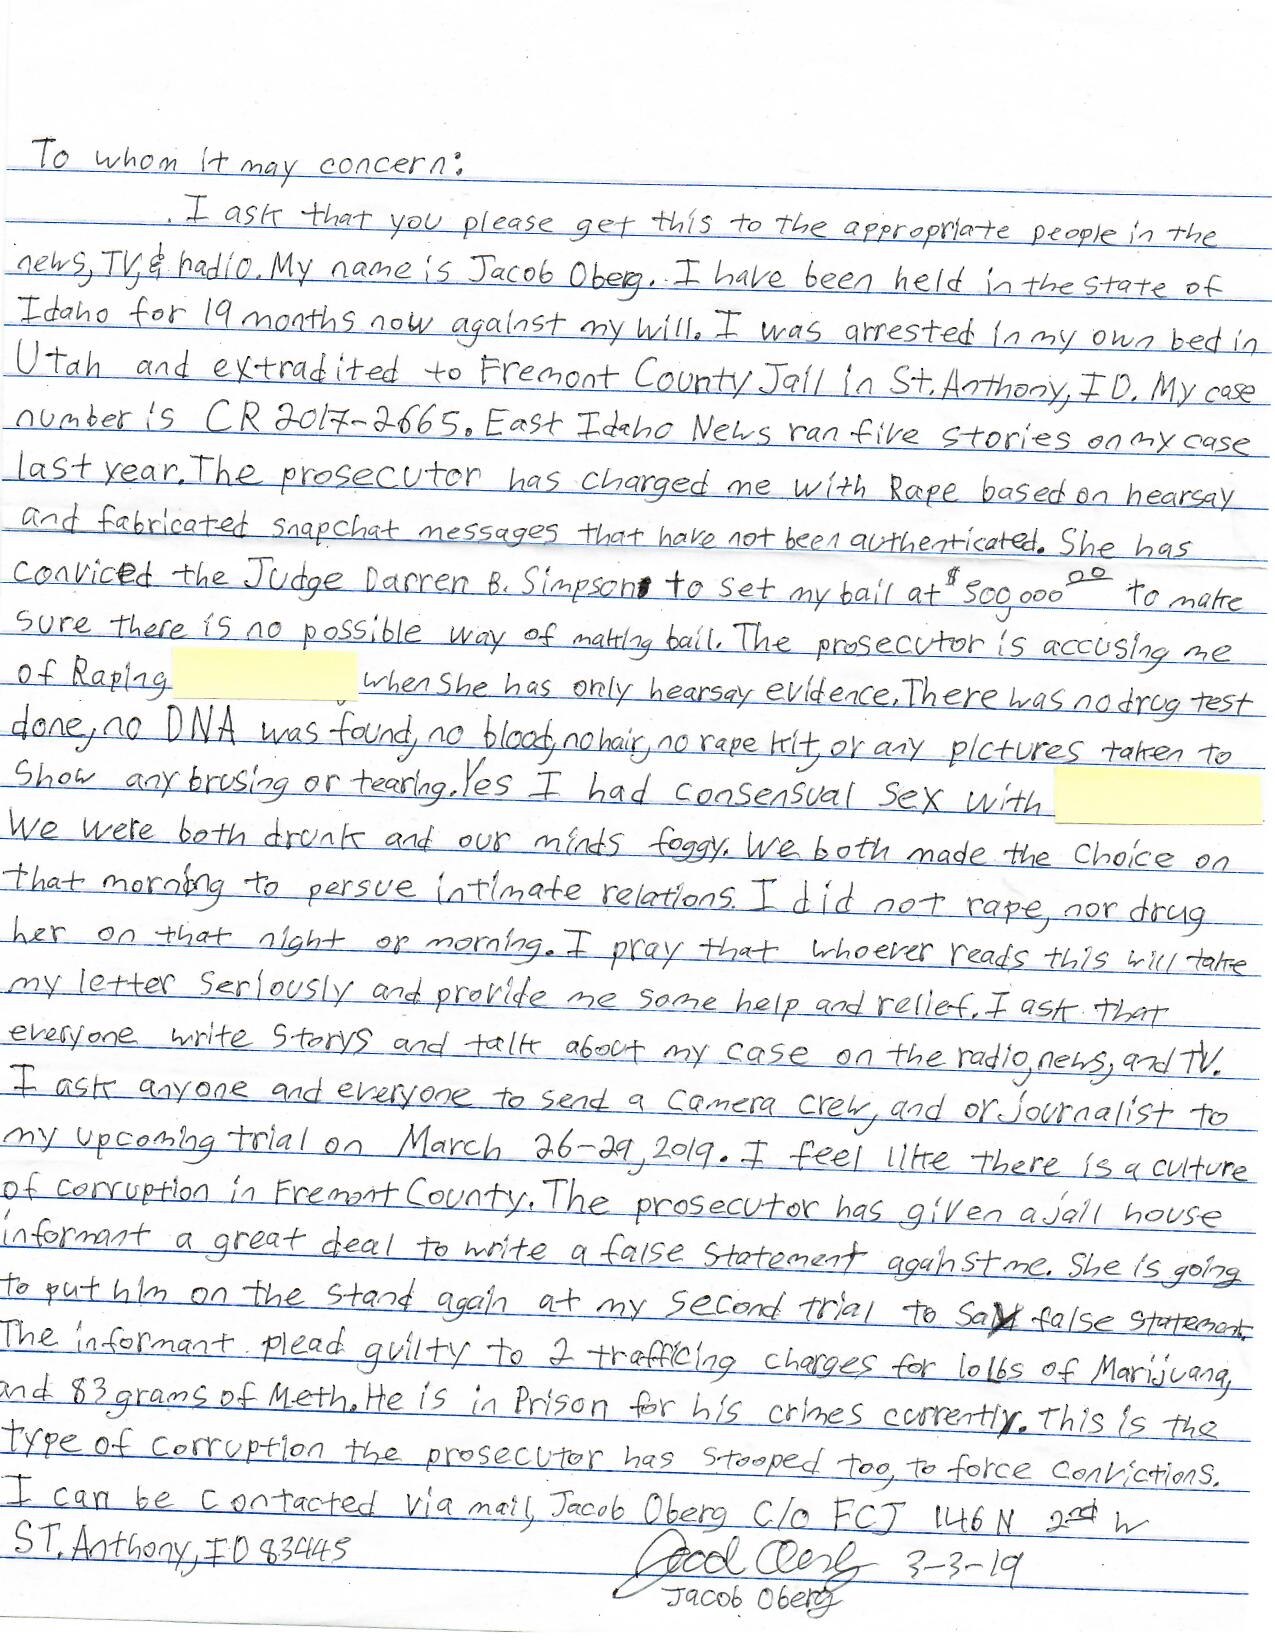 To whom it may concern:
. I ask that you please get this to the appropriate people in the
news, TV, & radio. My name is Jacob Oberg. I have been held in the state of
Idaho for 19 months now against my will. I was arrested in my own bed in
Utah and extradited to Fremont County Jail in St. Anthony, ID. My case
number is CR 2017-2665. East Idaho News ran five stories on my case
last year. The prosecutor has charged me with Rape based on hearsay
and fabricated snapchat messages that have not been authenticated. She has
conviced the Judge Darren B. Simpson to set my bail at $500,000 00 to make
sure there is no possible way of making bail. The prosecutor is accusing me
of Raping when she has only hearsay evidence. There was no drug test
done, no DNA was found, no blood, no hair, no rape kit, or any pictures taken to
show any brusing or tearing. Yes I had consensual sex with
We were both drunk and our minds foggy. We both made the choice on
that morning to persue intimate relations. I did not rape, nor drug
her on that night or morning. I pray that whoever reads this will take
my letter seriously and provide me some help and relief. I ask that
everyone write storys and talk about my case on the radio, news, and TV.
I ask anyone and everyone to send a camera crew, and or journalist to
my upcoming trial on March 26-29, 2019. I feel like there is a culture
of corruption in Fremont County. The prosecutor has given a jail house
informant a great deal to write a false statement against me. She is going
to put him on the stand again at my second trial to say false statement.
The informant plead guilty to 2 trafficing charges for 10 lbs of Marijuana,
and 83 grams of Meth. He is in Prison for his crimes currently. This is the
type of corruption the prosecutor has stooped too, to force convictions.
I can be contacted via mail, Jacob Oberg C/o FCJ 146 N 2nd W
ST. Anthony, ID 83445
Jacob Oberg 3-3-19
Jacob Oberg